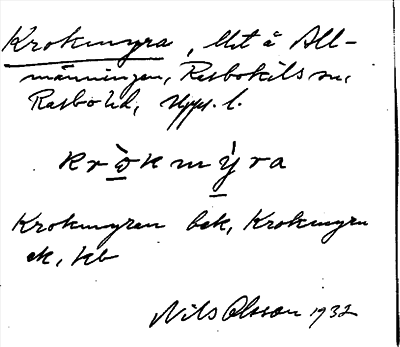 Krokmyra, Mt å All-
männingen, Rasbokils sn,
Rasbo hd, Uppl. l.
kròkmỳra
Krokmyren bek, Krokmyru
ek, kb
Nils Olsson 1932